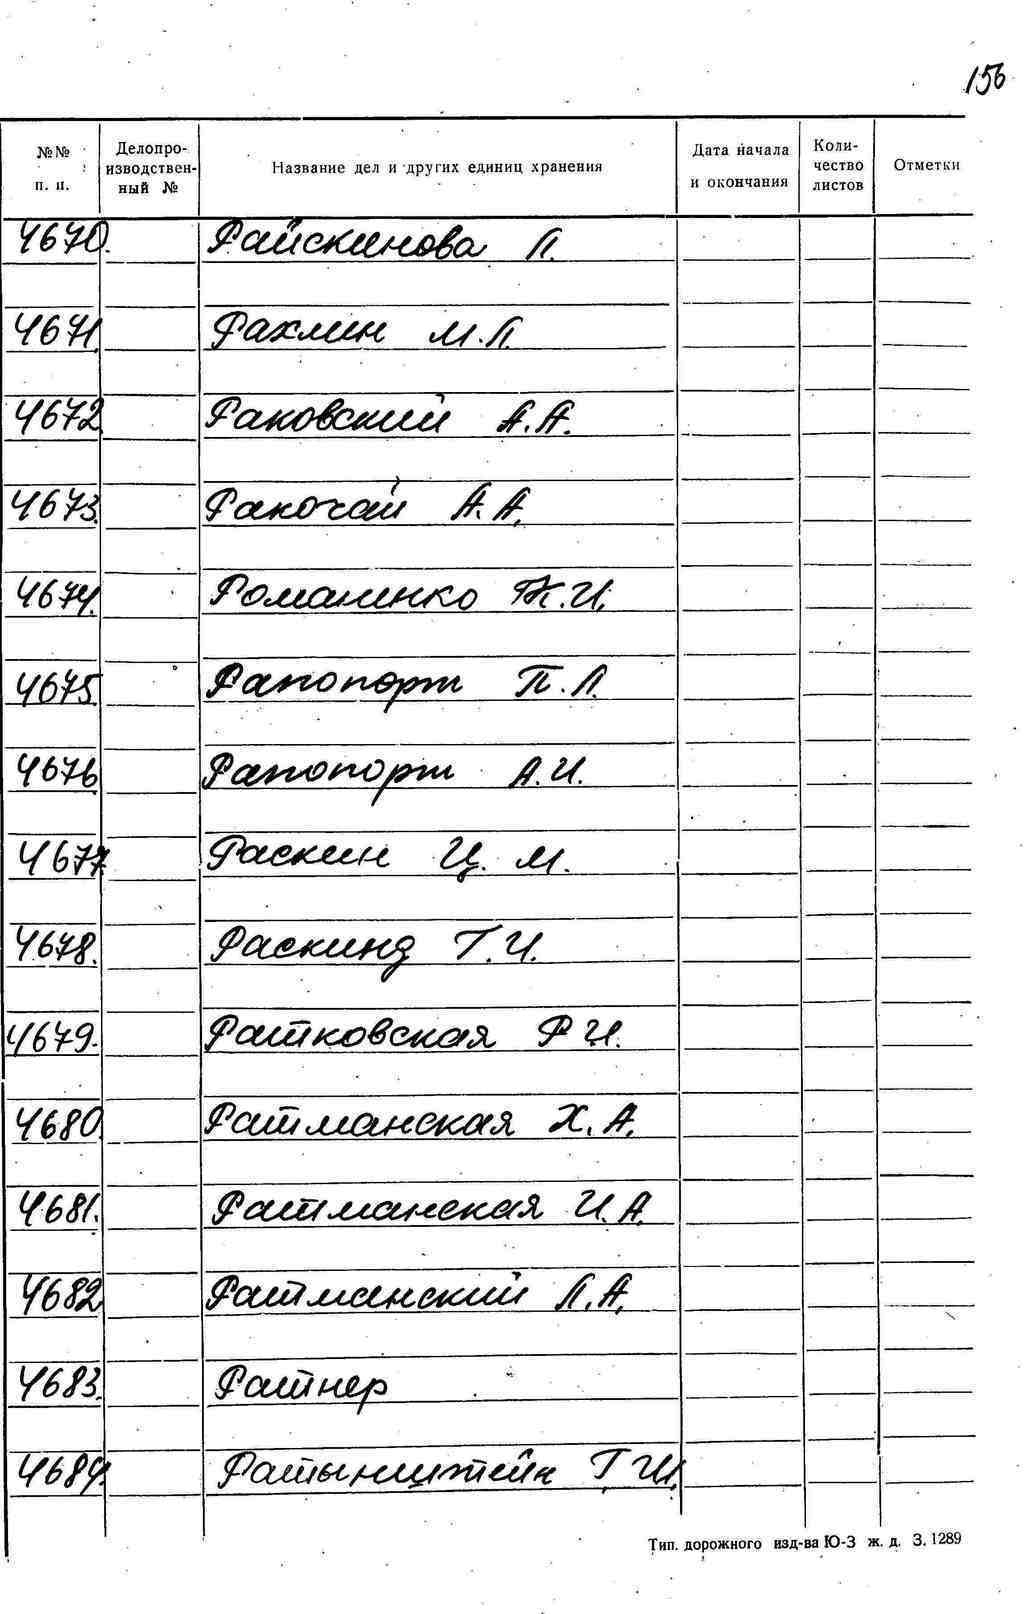 156
№№ п. п. Делопроизводственный № Название дел и других единиц хранения Дата начала и окончания Количество листов Отметки
4670. Райскинова Л.
4671. Рахлин М.Л.
4672. Раковский А.А.
4673. Ракочай А.А.
4674. Романенко Ж.И.
4675. Рапопорт П.Л.
4676 Рапопорт А.И.
4677 Раскин Ц. М.
4678. Раскинд Г.И.
4679. Ратковская Р И.
4680. Ратманская Х.А.
4681. Ратманская И.А.
4682 Ратманский Л.А.
4683. Ратнер
4684. Ратынштейн Г.И.
Тип. дорожного изд-ва Ю-З ж. д. З. 1289